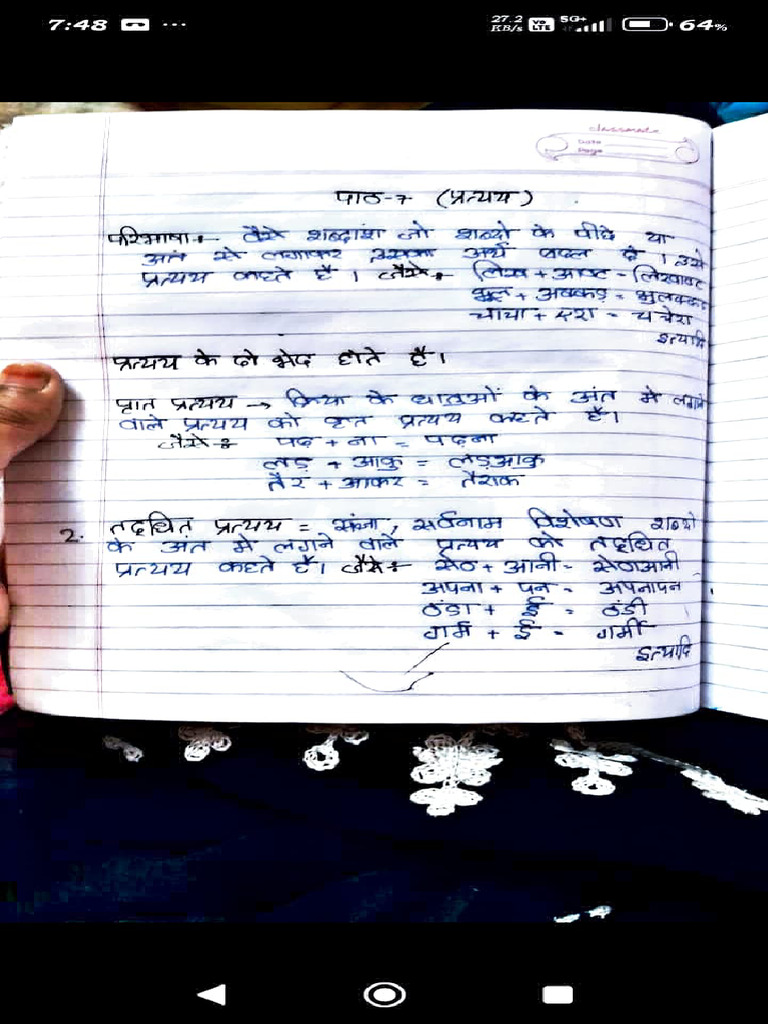 7:48 ...
27.2 KB/s Vo LTE 5G+ 64%
classmate
Date
Page
पाठ-7 (प्रत्यय)
परिभाषा:- वैसे शब्दांश जो शब्दो के पीछे या
अंत से लगाकर उसका अर्थ बदल दे। उसे
प्रत्यय कहते है। जैसे:- लिख + आवट - लिखावट
भूल + अक्कड़ = भुलक्कड़
चाचा + एरा = चचेरा
इत्यादि
प्रत्यय के दो भेद होते है।
प्रत्यय → क्रिया के धातुओं के अंत मे लगने
वाले प्रत्यय को कृत प्रत्यय कहते है।
जैसे:- पढ़ + ना = पढ़ना
लड़ + आकु = लड़आकु
तैर + आकर = तैराक
2. तद्धित प्रत्यय = संज्ञा, सर्वनाम विशेषण शब्दो
के अंत मे लगने वाले प्रत्यय को तद्धित
प्रत्यय कहते है। जैसे:- सेठ + आनी = सेठआनी
अपना + पन = अपनापन
ठंडा + ई = ठंडी
गर्म + ई = गर्मी
इत्यादि